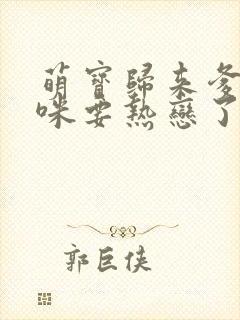 萌寶歸来爹
咪要熱戀了
郭巨俠